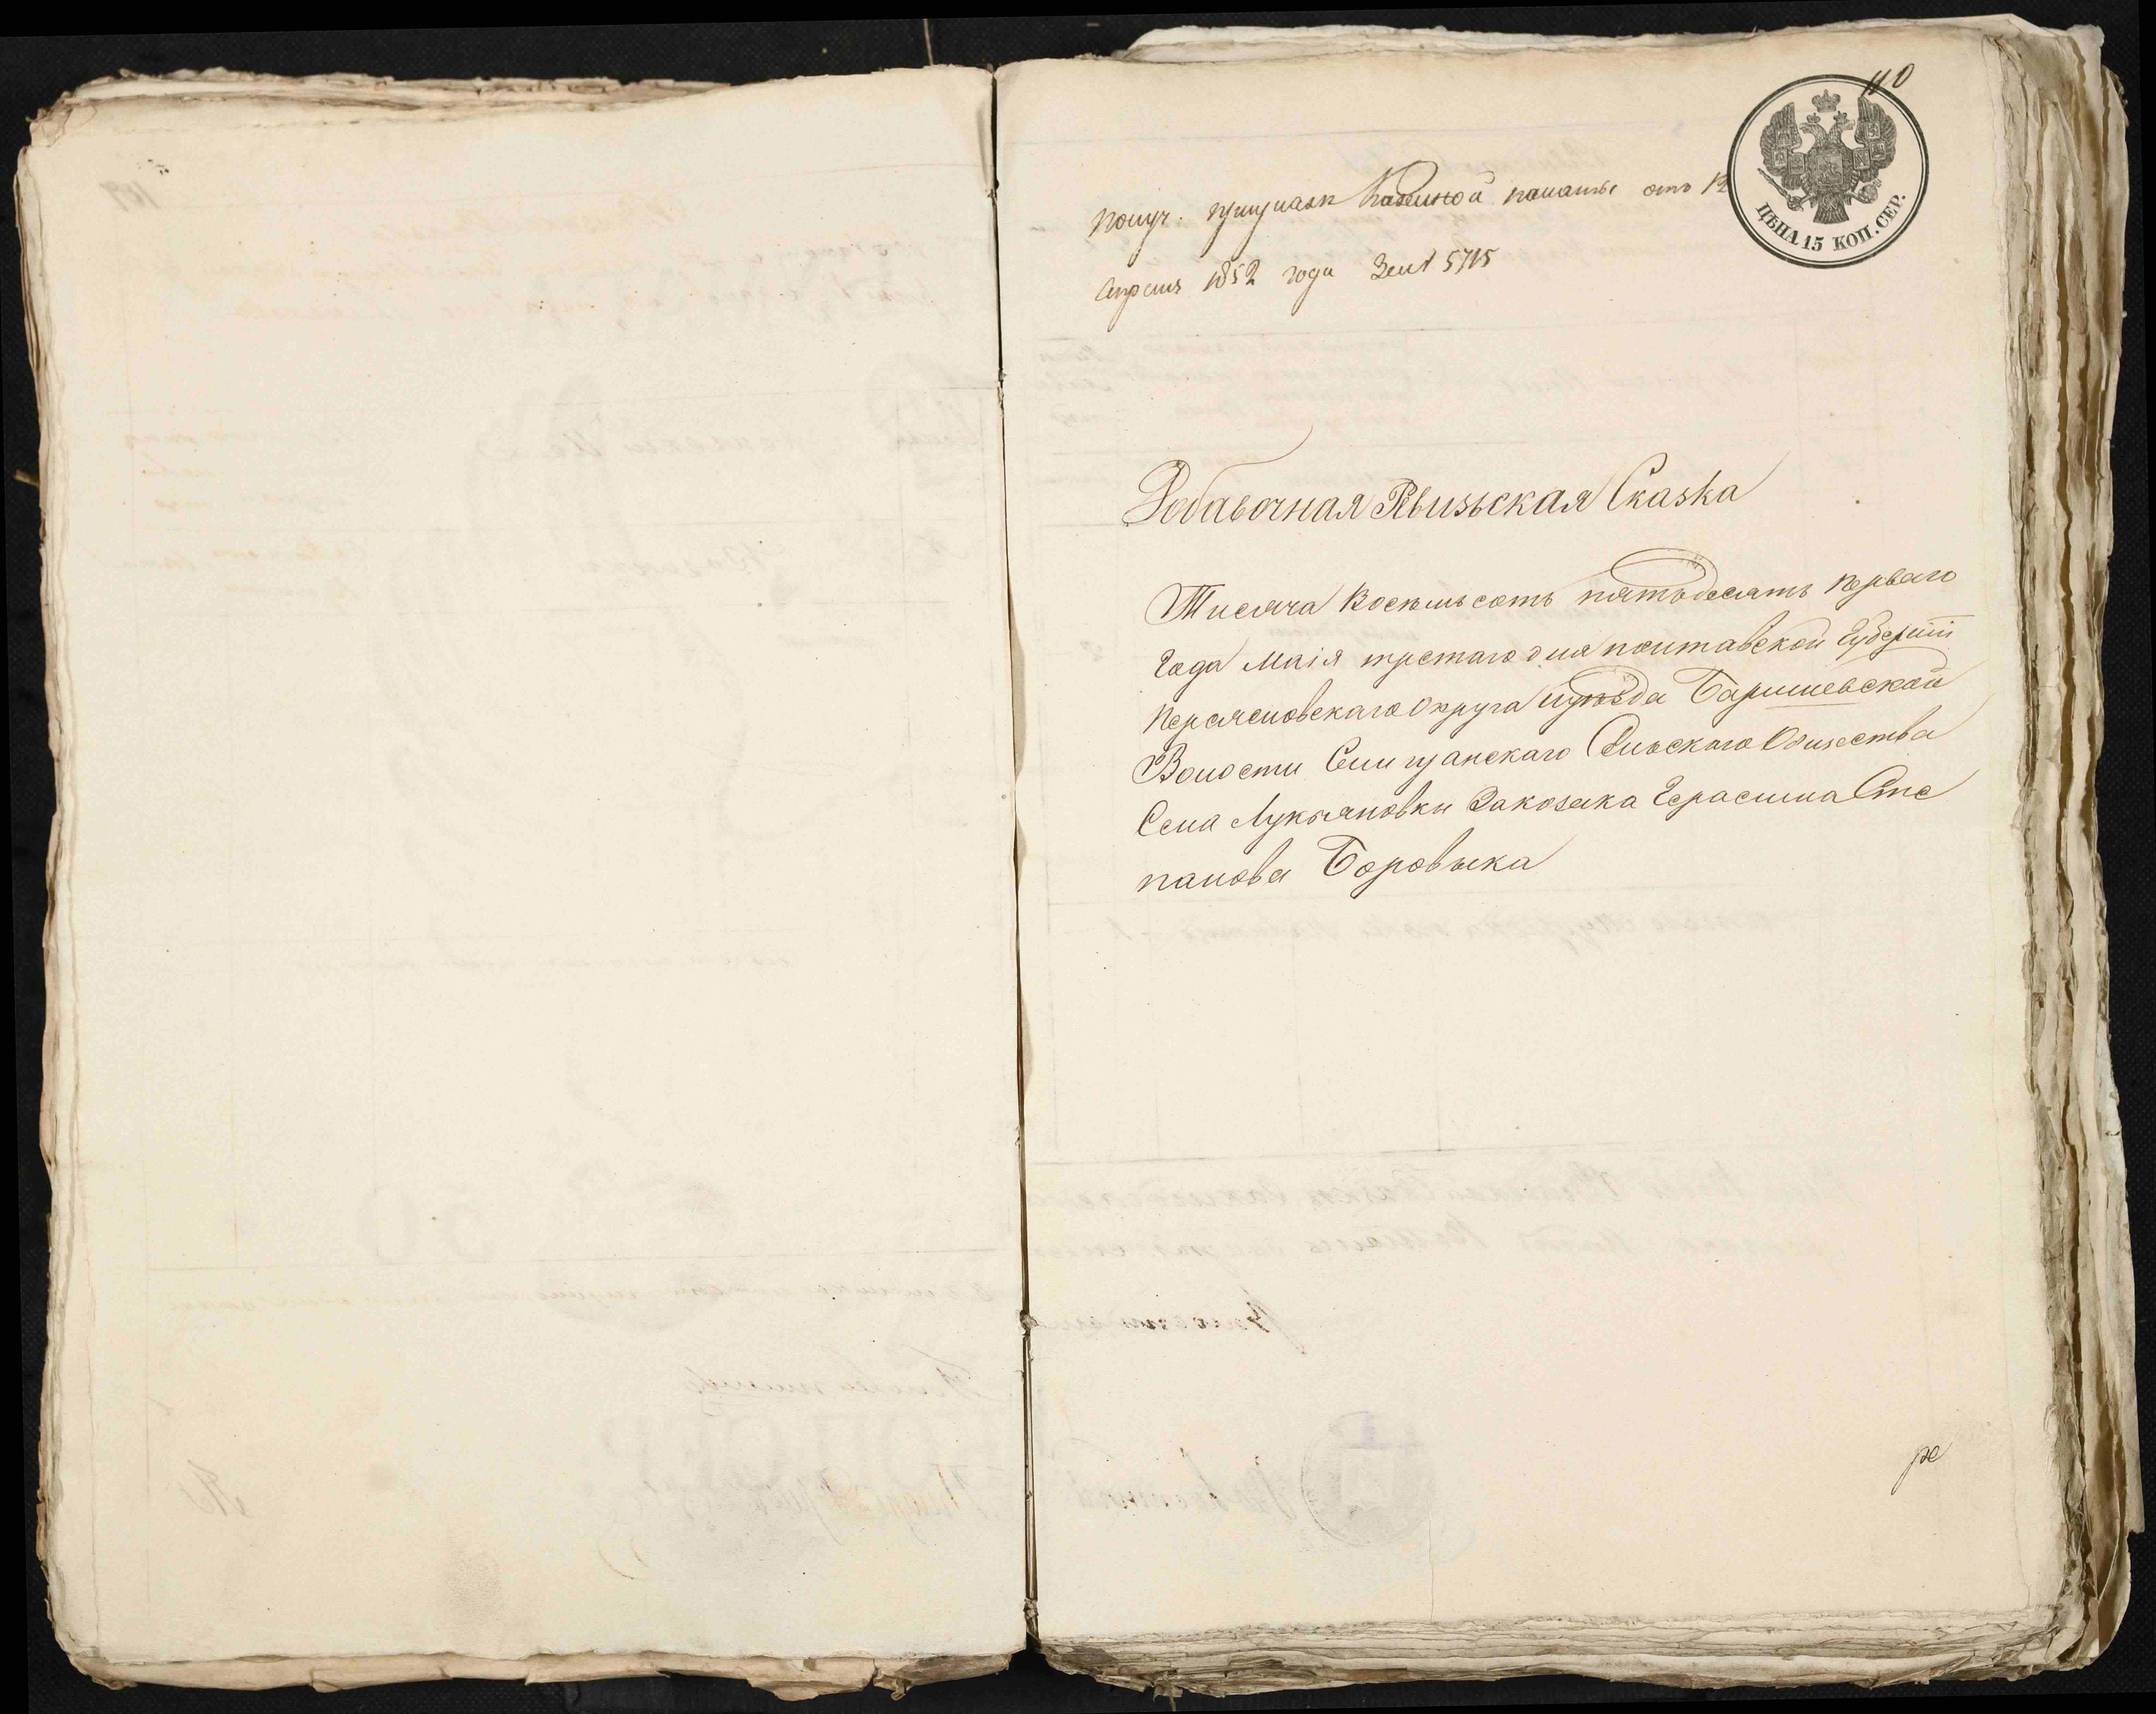 110
ЦѢНА 15 КОП. СЕР.
Казенной палаты отъ 12
Апреля 1852 года 5715
Добавочная Ревизьская Сказка
Тисяча восемьсотъ пятьдесятъ перваго
Года Маія третаго дня полтавской Губерніи
Переясловскаго округа иуѣзда Баришевской
Волости Селищанскаго Сельскаго Общества
Села Лукъяновки Закозака Герасима Сте
панова Боровыка
ре